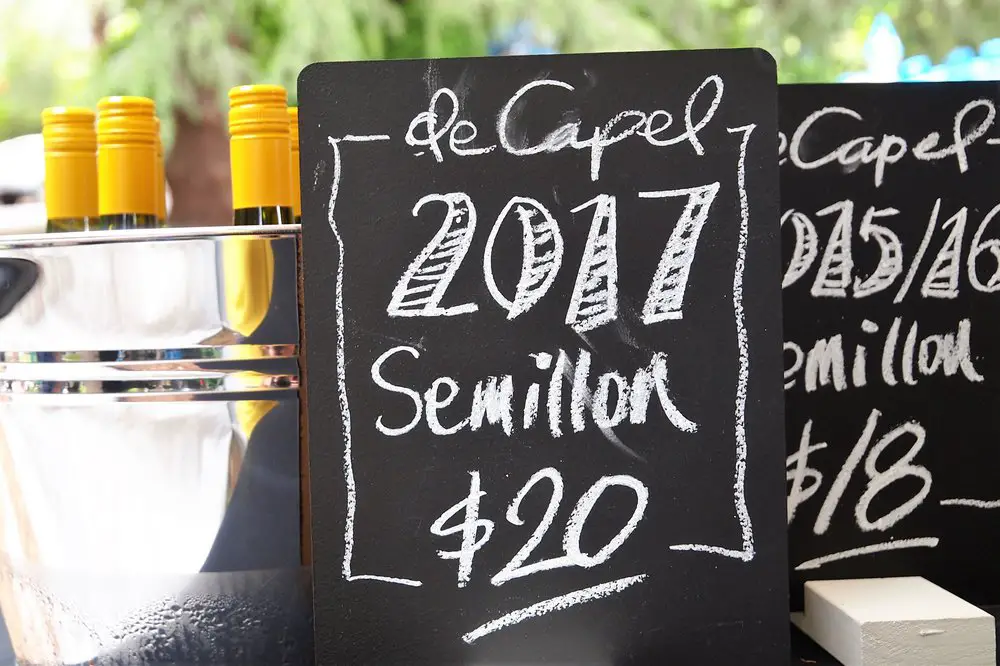 de Capel
2017
Semillon
$20
de Capel
2015/16
Semillon
$18